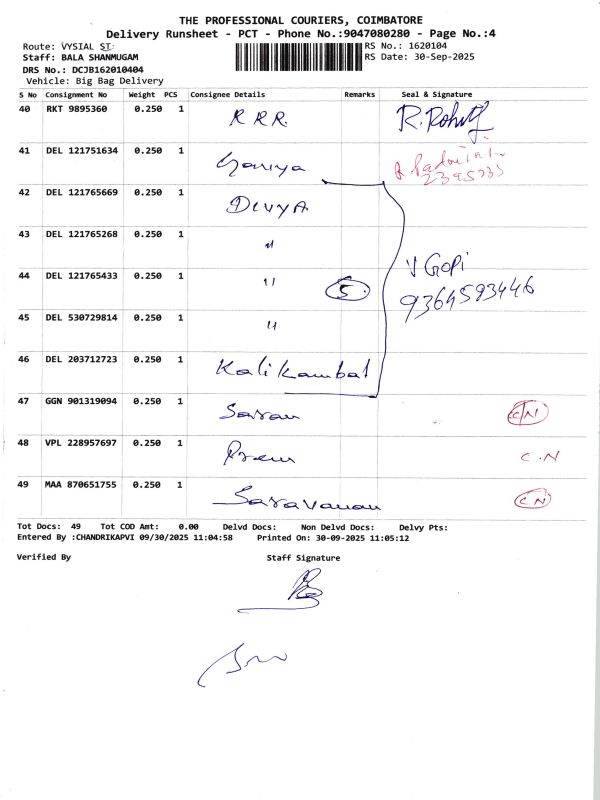 THE PROFESSIONAL COURIERS, COIMBATORE
Delivery Runsheet - PCT - Phone No.:9047080280 - Page No.:4
Route: VYSIAL ST: RS No.: 1620104
Staff: BALA SHANMUGAM RS Date: 30-Sep-2025
DRS No.: DCJB162010404
Vehicle: Big Bag Delivery
S No Consignment No Weight PCS Consignee Details Remarks Seal & Signature
40 RKT 9895360 0.250 1 R R R. R.Rohit
41 DEL 121751634 0.250 1
42 DEL 121765669 0.250 1 DIVYA
43 DEL 121765268 0.250 1 "
44 DEL 121765433 0.250 1 " 5. V Gopi
9364593446
45 DEL 530729814 0.250 1 "
46 DEL 203712723 0.250 1 Kalikambal
47 GGN 901319094 0.250 1 Saran CN
48 VPL 228957697 0.250 1 Prem C.N
49 MAA 870651755 0.250 1 Saravanan CN
Tot Docs: 49 Tot COD Amt: 0.00 Delvd Docs: Non Delvd Docs: Delvy Pts:
Entered By :CHANDRIKAPVI 09/30/2025 11:04:58 Printed On: 30-09-2025 11:05:12
Verified By Staff Signature